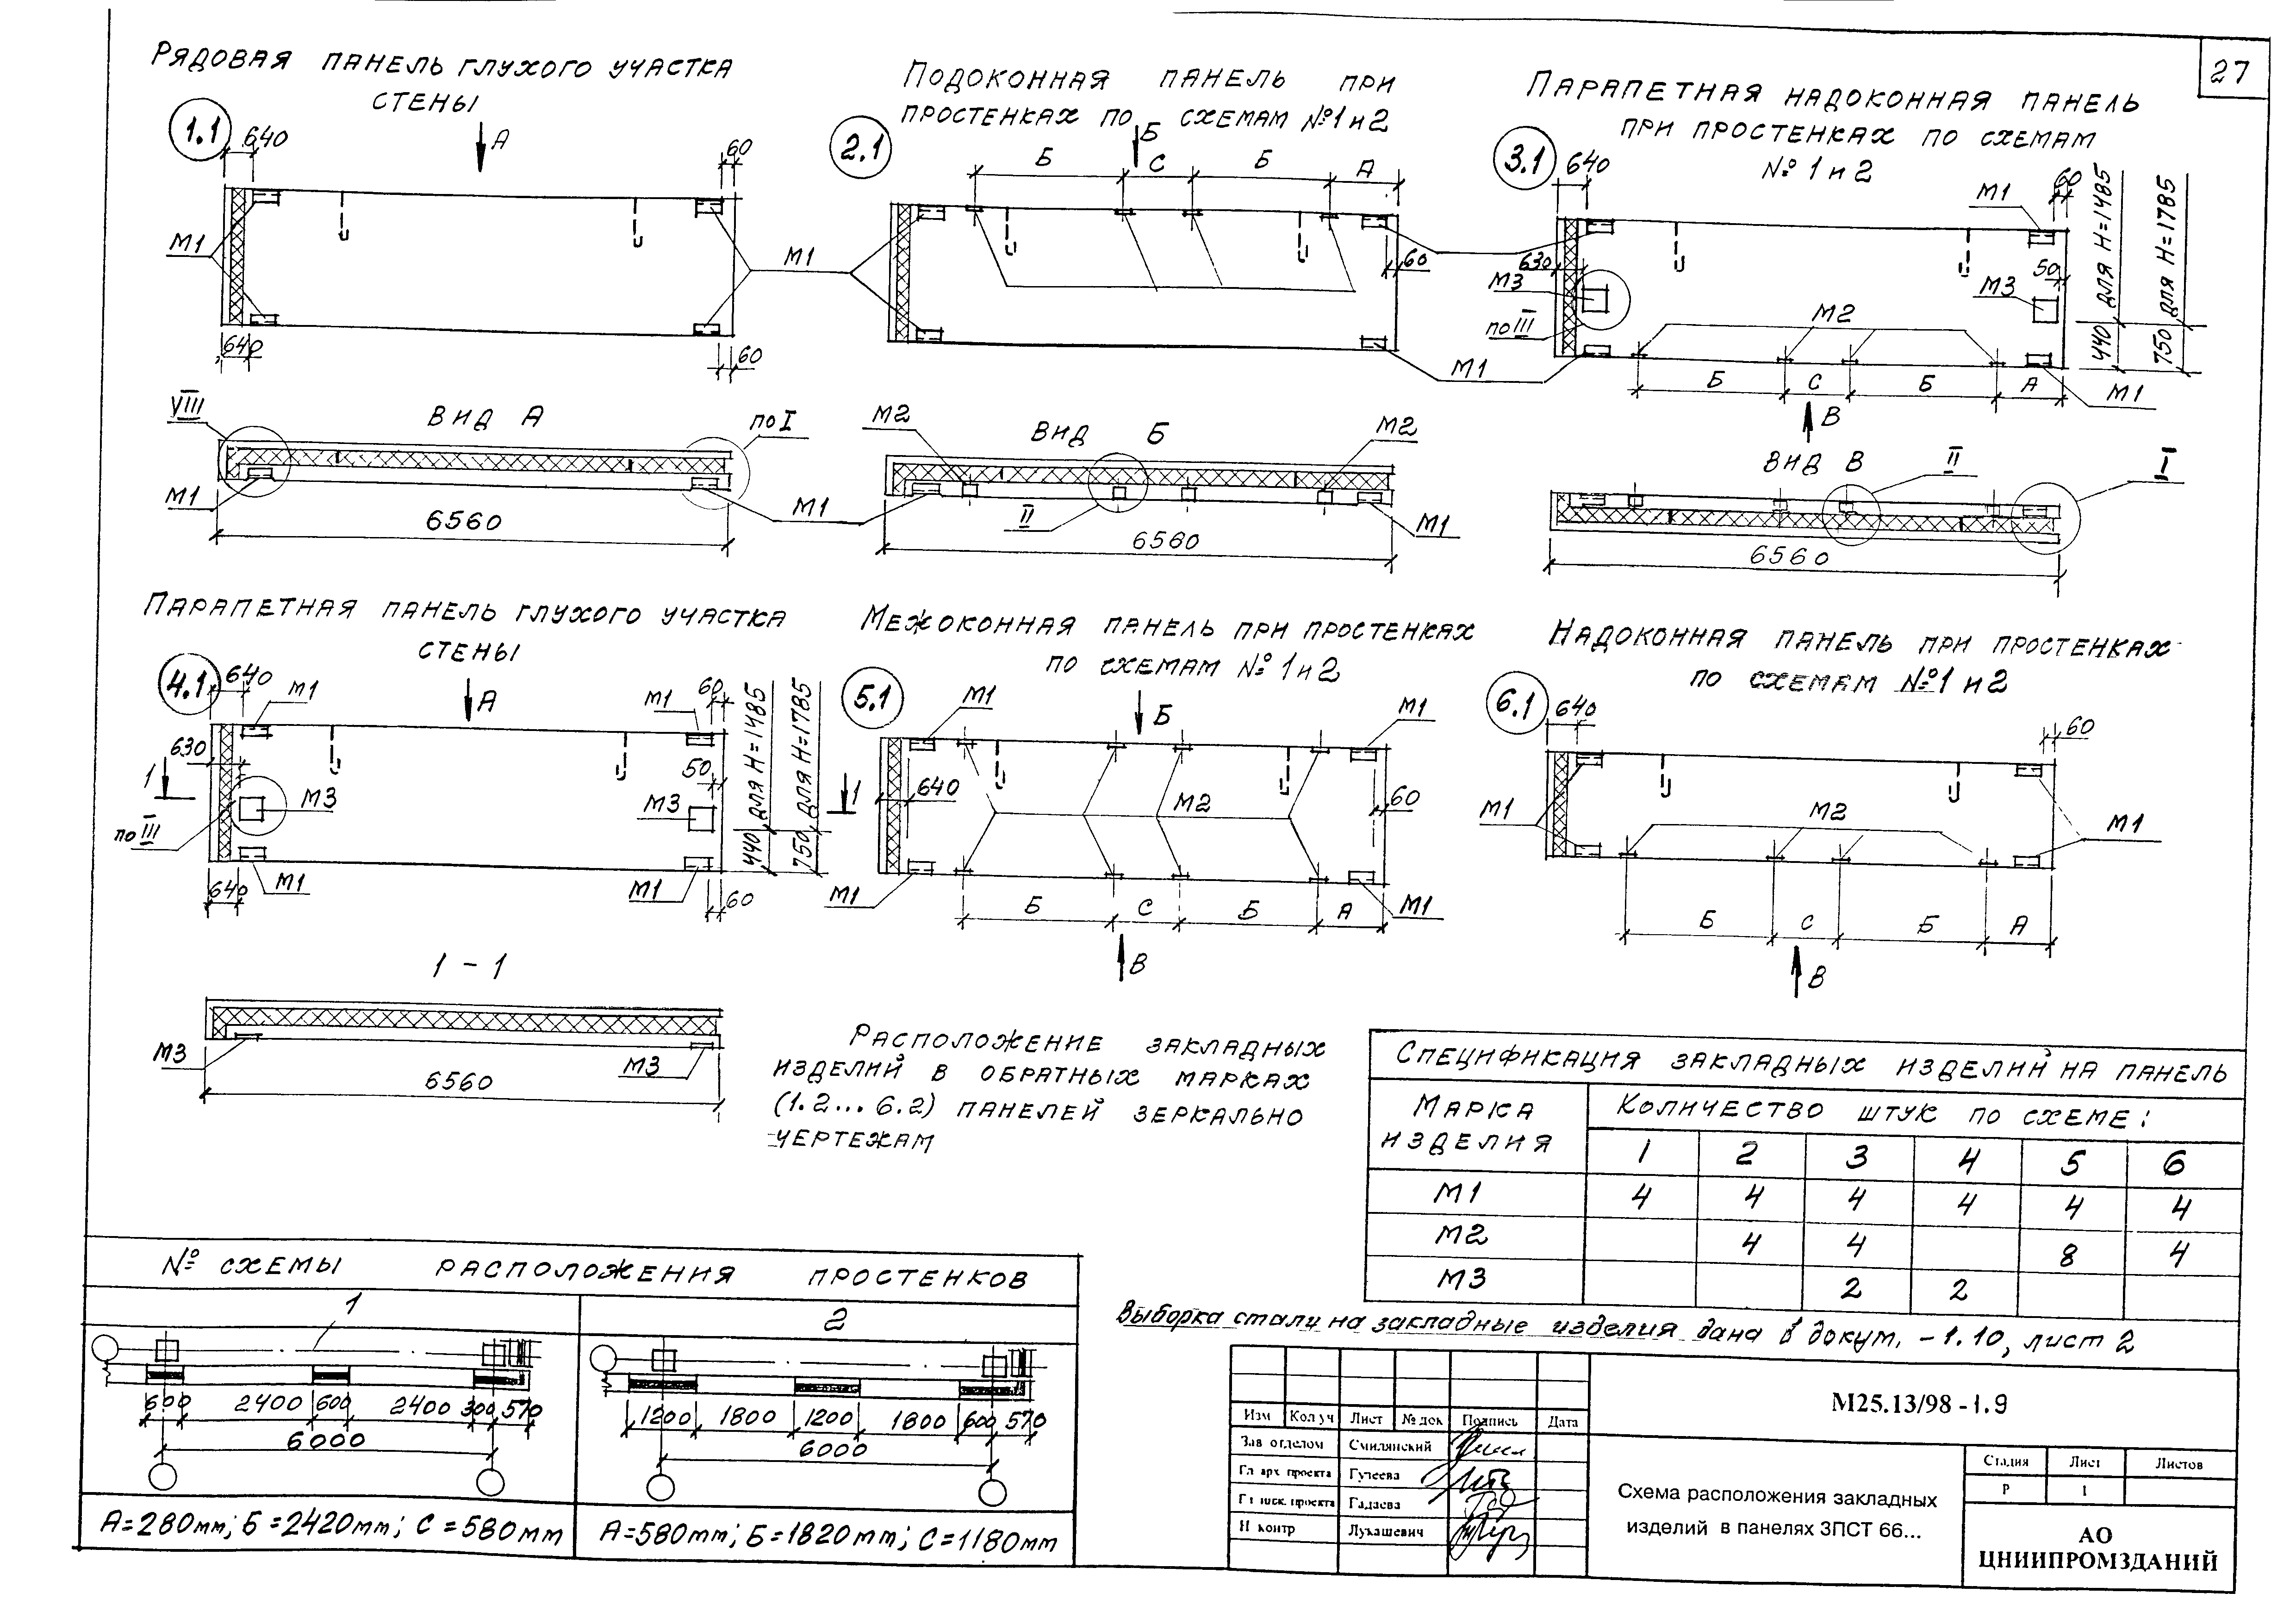 27
РЯДОВАЯ ПАНЕЛЬ ГЛУХОГО УЧАСТКА
СТЕНЫ
1.1
640
А
60
М1
М1
640
60
ВИД А
VIII
по I
М1
М1
6560
ПОДОКОННАЯ ПАНЕЛЬ ПРИ
ПРОСТЕНКАХ ПО СХЕМАМ №1 и 2
2.1
Б
Б
С
Б
А
60
М1
М2
ВИД Б
М2
II
М1
6560
ПАРАПЕТНАЯ НАДОКОННАЯ ПАНЕЛЬ
ПРИ ПРОСТЕНКАХ ПО СХЕМАМ
№ 1 и 2
3.1
640
М1
60
630
М3
по III
50
М3
М2
440 ДЛЯ Н=1485
750 ДЛЯ Н=1785
Б
С
Б
А
М1
В
ВИД В
II
I
6560
ПАРАПЕТНАЯ ПАНЕЛЬ ГЛУХОГО УЧАСТКА
СТЕНЫ
4.1
640
М1
А
М1
60
630
1
М3
50
М3
1
по III
440 ДЛЯ Н=1485
750 ДЛЯ Н=1785
640
М1
М1
60
1 - 1
М3
М3
6560
МЕЖОКОННАЯ ПАНЕЛЬ ПРИ ПРОСТЕНКАХ
ПО СХЕМАМ № 1 и 2
5.1
М1
Б
М1
640
М2
60
М1
М1
Б
С
Б
А
В
НАДОКОННАЯ ПАНЕЛЬ ПРИ ПРОСТЕНКАХ
ПО СХЕМАМ №1 и 2
6.1
640
60
М1
М2
М1
Б
С
Б
А
В
РАСПОЛОЖЕНИЕ ЗАКЛАДНЫХ
ИЗДЕЛИЙ В ОБРАТНЫХ МАРКАХ
(1.2... 6.2) ПАНЕЛЕЙ ЗЕРКАЛЬНО
ЧЕРТЕЖАМ
СПЕЦИФИКАЦИЯ ЗАКЛАДНЫХ ИЗДЕЛИЙ НА ПАНЕЛЬ
МАРКА ИЗДЕЛИЯ
КОЛИЧЕСТВО ШТУК ПО СХЕМЕ:
1 2 3 4 5 6
М1 4 4 4 4 4 4
М2 4 4 8 4
М3 2 2
Выборка стали на закладные изделия дана в докум. -1.10, лист 2
№ СХЕМЫ РАСПОЛОЖЕНИЯ ПРОСТЕНКОВ
1
2
600 2400 600 2400 300 570
6000
1200 1800 1200 1800 600 570
6000
А=280мм; Б=2420мм; С=580мм
А=580мм; Б=1820мм; С=1180мм
Изм Кол уч Лист № док Подпись Дата
Зав отделом Смилянский
Гл арх проекта Гутеева
Гл инж. проекта Гадаева
Н контр Лукашевич
М25.13/98 -1.9
Схема расположения закладных
изделий в панелях 3ПСТ 66...
Стадия Лист Листов
Р 1
АО
ЦНИИПРОМЗДАНИЙ